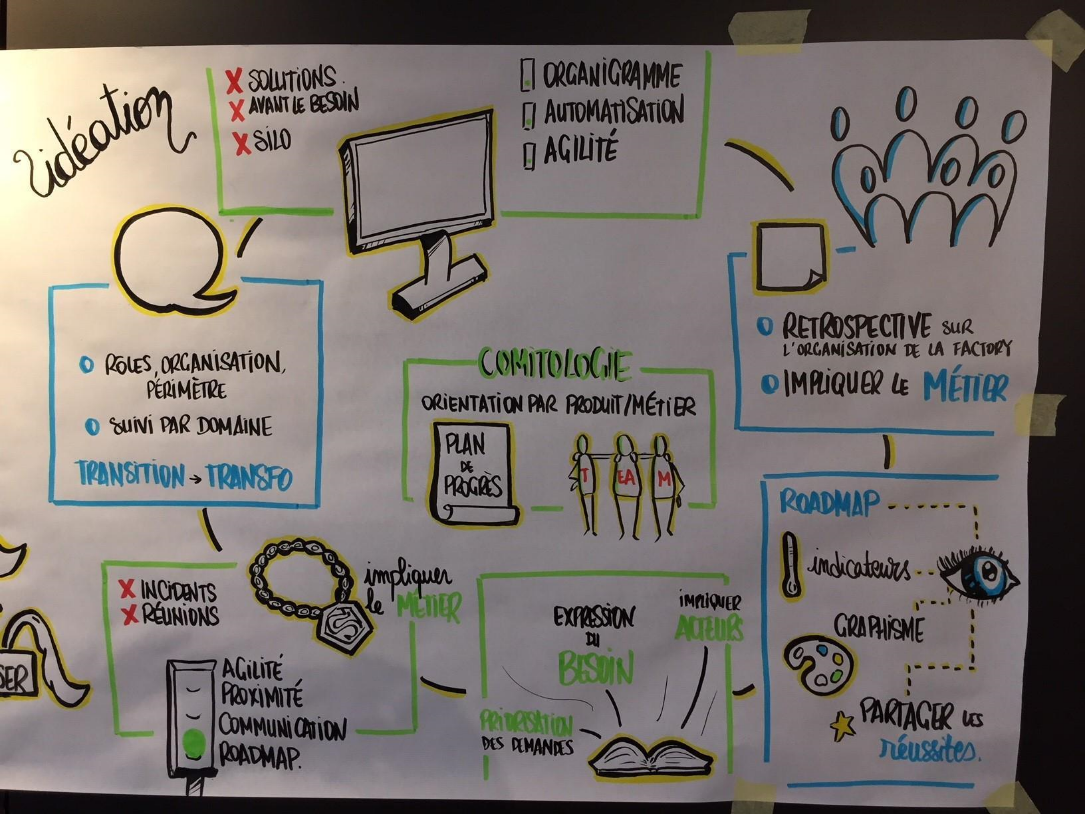 l'idéation
X SOLUTIONS
X AVANT LE BESOIN
X SILO
ORGANIGRAMME
AUTOMATISATION
AGILITÉ
RÔLES, ORGANISATION,
PÉRIMÈTRE
SUIVI PAR DOMAINE
TRANSITION → TRANSFO
COMITOLOGIE
ORIENTATION PAR PRODUIT/MÉTIER
PLAN
DE
PROGRÈS
T EA M
RETROSPECTIVE SUR
L'ORGANISATION DE LA FACTORY
IMPLIQUER LE MÉTIER
X INCIDENTS
X RÉUNIONS
impliquer
le MÉTIER
S
AGILITÉ
PROXIMITÉ
COMMUNICATION
ROADMAP.
SER
EXPRESSION
DU
BESOIN
IMPLIQUER
ACTEURS
PRIORISATION
DES DEMANDES
ROADMAP
indicateurs
GRAPHISME
PARTAGER LES
réussites.